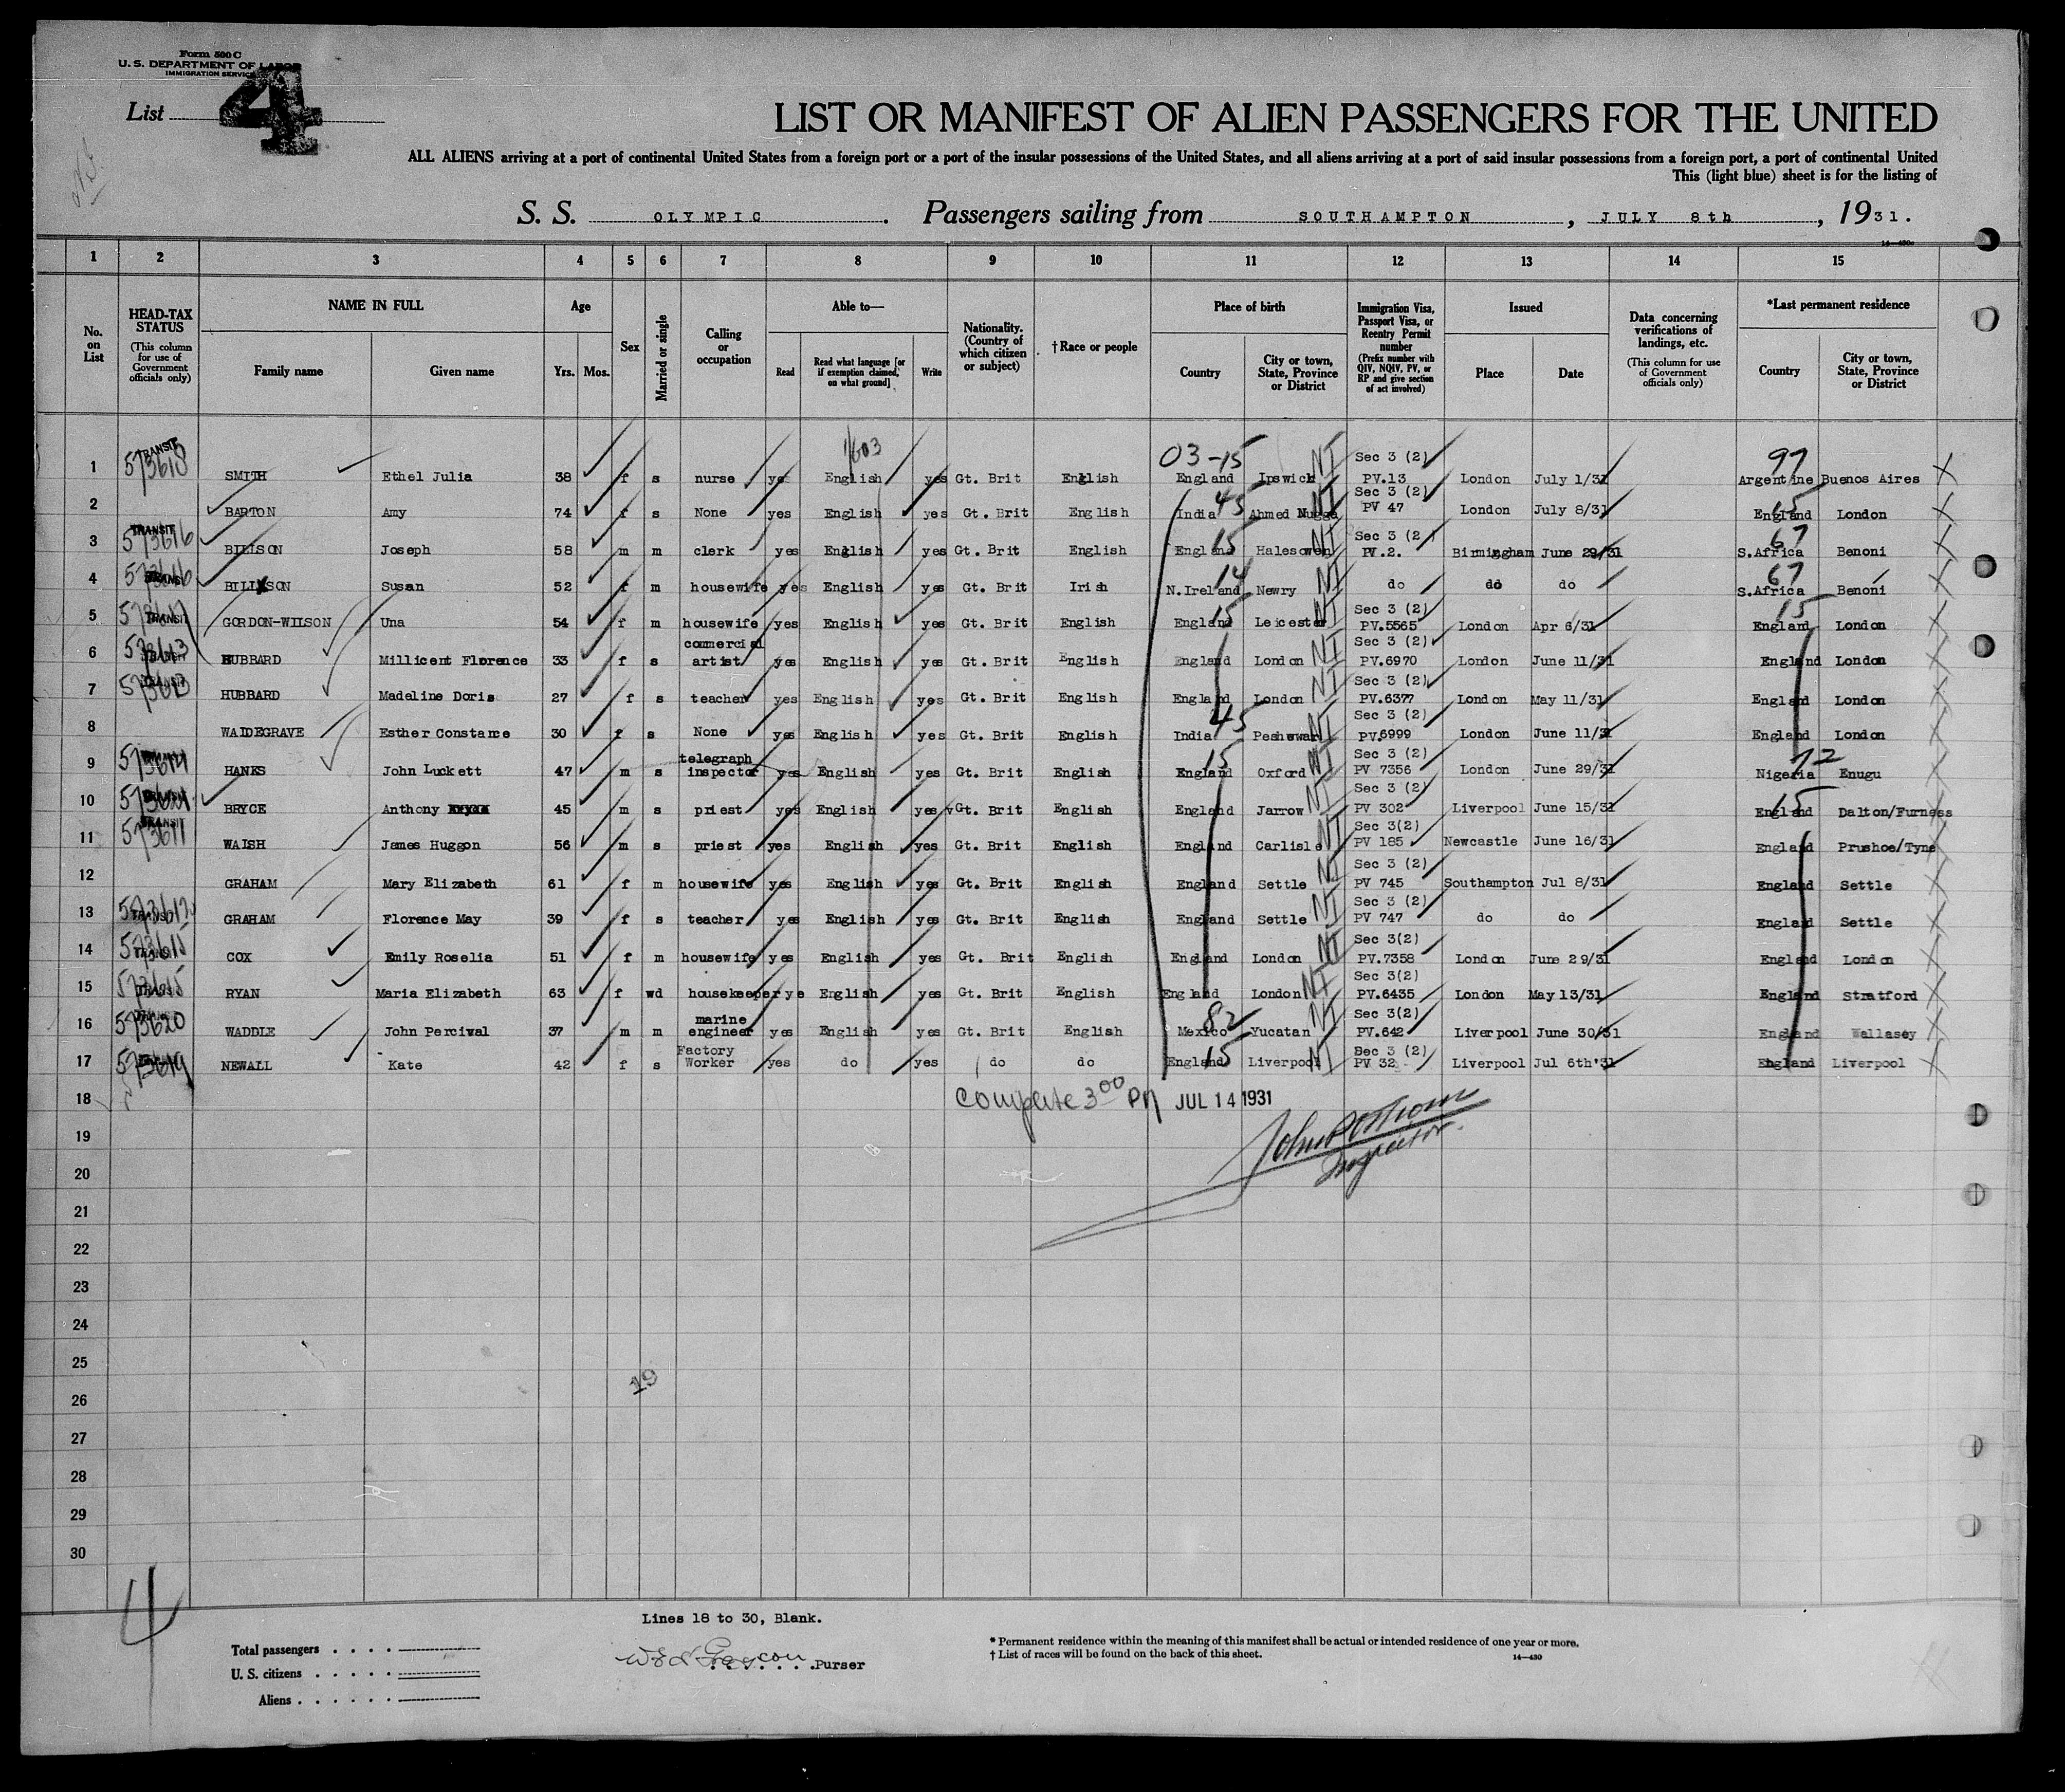 Form 500 C
U. S. DEPARTMENT OF LABOR
IMMIGRATION SERVICE
List 4
LIST OR MANIFEST OF ALIEN PASSENGERS FOR THE UNITED
ALL ALIENS arriving at a port of continental United States from a foreign port or a port of the insular possessions of the United States, and all aliens arriving at a port of said insular possessions from a foreign port, a port of continental United
This (light blue) sheet is for the listing of
S. S. OLYMPIC. Passengers sailing from SOUTHAMPTON, JULY 8th, 1931.
14—430c
1 2 3 4 5 6 7 8 9 10 11 12 13 14 15
No. on List
HEAD-TAX STATUS (This column for use of Government officials only)
NAME IN FULL
Family name Given name
Age
Yrs. Mos.
Sex
Married or single
Calling or occupation
Able to—
Read Read what language [or if exemption claimed, on what ground] Write
Nationality. (Country of which citizen or subject)
†Race or people
Place of birth
Country City or town, State, Province or District
Immigration Visa, Passport Visa, or Reentry Permit number (Prefix number with QIV, NQIV, PV, or RP and give section of act involved)
Issued
Place Date
Data concerning verifications of landings, etc. (This column for use of Government officials only)
*Last permanent residence
Country City or town, State, Province or District
1603 03-15 97
1 TRANSIT 573618 SMITH Ethel Julia 38 f s nurse yes English yes Gt. Brit English England Ipswich NI Sec 3 (2) PV.13 London July 1/31 Argentine Buenos Aires
2 BARTON Amy 74 f s None yes English yes Gt. Brit English India 45 Ahmed Nugga NI Sec 3 (2) PV 47 London July 8/31 England 15 London
3 TRANSIT 573616 BILLSON Joseph 58 m m clerk yes English yes Gt. Brit English England 15 Halesowen NI Sec 3 (2) PV.2. Birmingham June 29/31 S.Africa 67 Benoni
4 TRANSIT 573616 BILLSON Susan 52 f m housewife yes English yes Gt. Brit Irish N.Ireland 14 Newry NI do do do S.Africa 67 Benoni
5 TRANSIT GORDON-WILSON Una 54 f m housewife yes English yes Gt. Brit English England 15 Leicester NI Sec 3 (2) PV.5565 London Apr 6/31 England 15 London
6 573613 HUBBARD Millicent Florence 33 f s commercial artist yes English yes Gt. Brit English England London NI Sec 3 (2) PV.6970 London June 11/31 England London
7 573613 HUBBARD Madeline Doris 27 f s teacher yes English yes Gt. Brit English England London NI Sec 3 (2) PV.6377 London May 11/31 England London
8 WALDEGRAVE Esther Constance 30 f s None yes English yes Gt. Brit English India 45 Peshewar NI Sec 3 (2) PV.6999 London June 11/31 England London
9 573614 HANKS John Luckett 47 m s telegraph inspector yes English yes Gt. Brit English England 15 Oxford NI Sec 3 (2) PV 7356 London June 29/31 Nigeria 72 Enugu
10 BRYCE Anthony 45 m s priest yes English yes Gt. Brit English England Jarrow NI Sec 3 (2) PV 302 Liverpool June 15/31 England 15 Dalton/Furness
11 TRANSIT 573611 WALSH James Huggon 56 m s priest yes English yes Gt. Brit English England Carlisle NI Sec 3(2) PV 185 Newcastle June 16/31 England Prushoe/Tyne
12 GRAHAM Mary Elizabeth 61 f m housewife yes English yes Gt. Brit English England Settle NI Sec 3 (2) PV 745 Southampton Jul 8/31 England Settle
13 TRANSIT GRAHAM Florence May 39 f s teacher yes English yes Gt. Brit English England Settle NI Sec 3 (2) PV 747 do do England Settle
14 573615 COX Emily Roselia 51 f m housewife yes English yes Gt. Brit English England London NI Sec 3(2) PV.7358 London June 29/31 England London
15 573615 RYAN Maria Elizabeth 63 f wd housekeeper ye English yes Gt. Brit English England London NI Sec 3(2) PV.6435 London May 13/31 England Stratford
16 573620 WADDLE John Percival 37 m m marine engineer yes English yes Gt. Brit English Mexico 82 Yucatan NI Sec 3(2) PV.642 Liverpool June 30/31 England Wallasey
17 573619 NEWALL Kate 42 f s Factory Worker yes do yes do do England 15 Liverpool NI Sec 3 (2) PV 32 Liverpool Jul 6th'31 England Liverpool
18 Complete 3 00 PM JUL 14 1931
19
Inspector.
20
21
22
23
24
25
19
26
27
28
29
30
4
Lines 18 to 30, Blank.
Total passengers
U. S. citizens
Aliens
Purser
* Permanent residence within the meaning of this manifest shall be actual or intended residence of one year or more.
† List of races will be found on the back of this sheet.
14—430